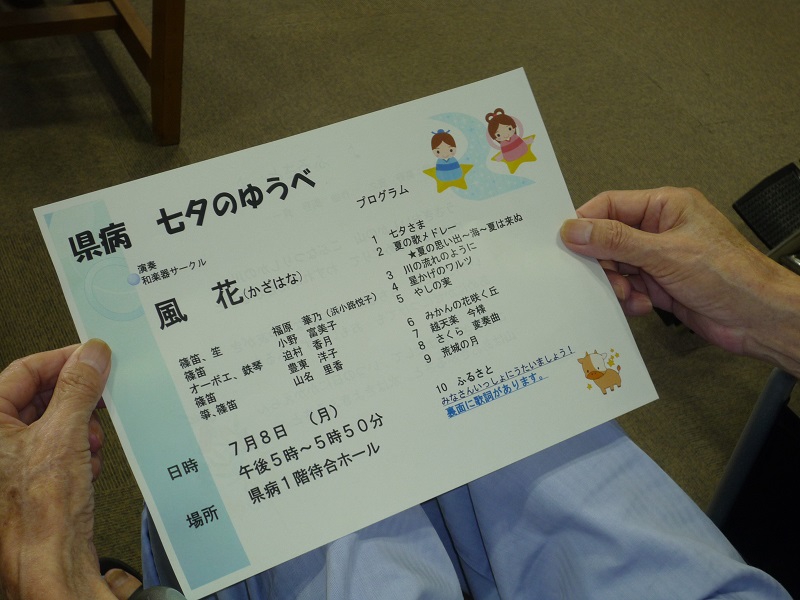 県病 七夕のゆうべ
演奏
和楽器サークル
風 花(かざはな)
篠笛、笙 福原 華乃(浜小路悦子)
篠笛 小野 富美子
オーボエ、鉄琴 迫村 香月
篠笛 豊東 洋子
箏、篠笛 山名 里香
日時 7月8日 (月)
午後5時~5時50分
場所 県病1階待合ホール
プログラム
1 七夕さま
2 夏の歌メドレー
★夏の思い出~海~夏は来ぬ
3 川の流れのように
4 星かげのワルツ
5 やしの実
6 みかんの花咲く丘
7 越天楽 今様
8 さくら 変奏曲
9 荒城の月
10 ふるさと
みなさんいっしょにうたいましょう!
裏面に歌詞があります。